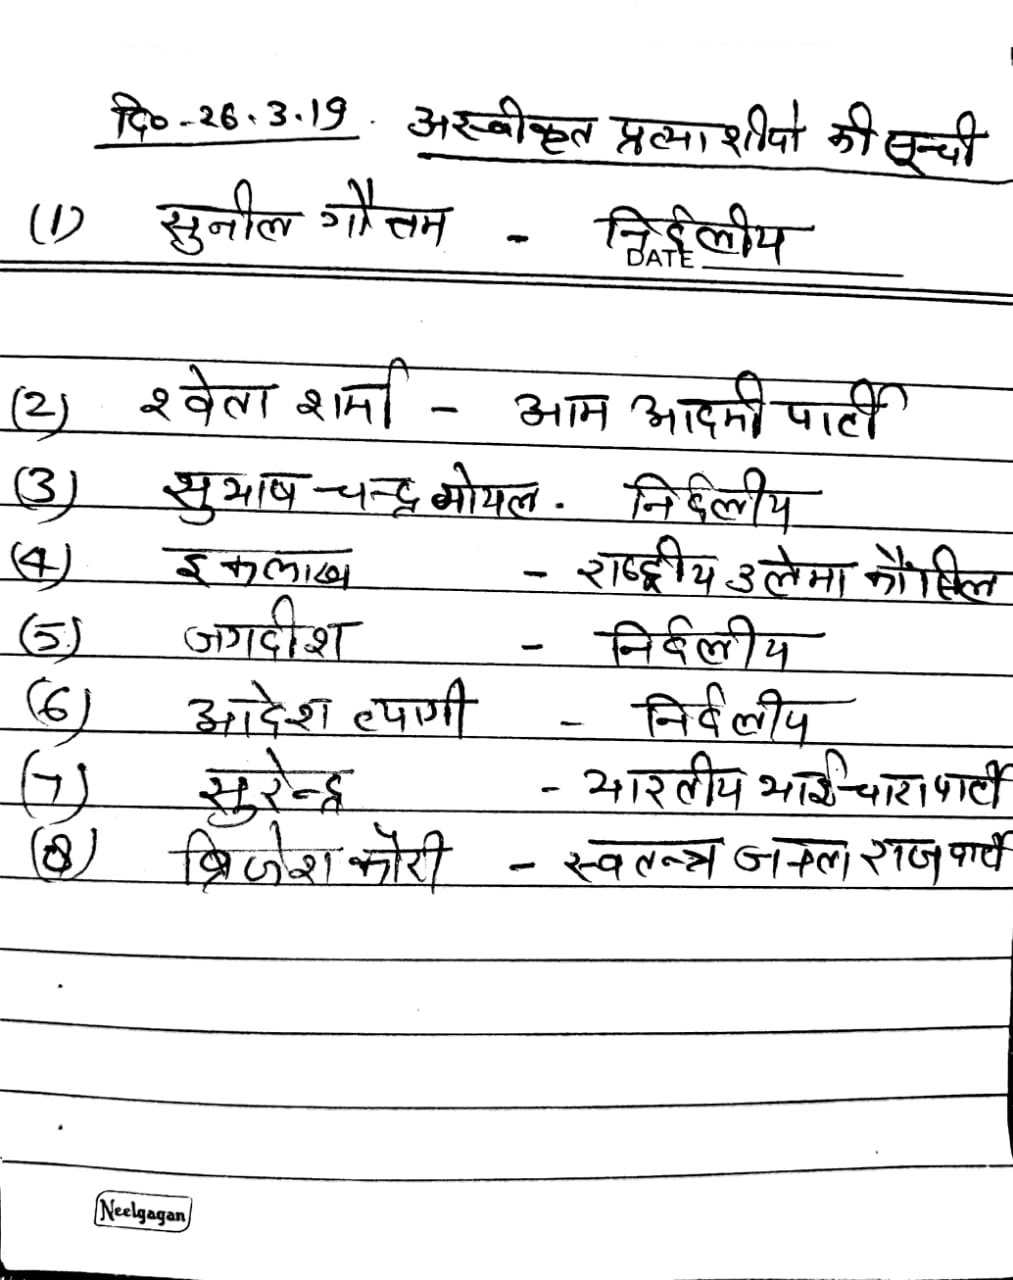 दि० - 26.3.19. अस्वीकृत प्रत्याशीयो की सूची
(1) सुनील गौतम - निर्दलीय
DATE
(2) श्वेता शर्मा - आम आदमी पार्टी
(3) सुभाष चन्द्र गोयल. निर्दलीय
(4) इकलाख - राष्ट्रीय उलेमा कौंसिल
(5) जगदीश - निर्दलीय
(6) आदेश त्यागी - निर्दलीय
(7) सुरेन्द्र - भारतीय भाईचारा पार्टी
(8) ब्रिजेश कोरी - स्वतन्त्र जनता राज पार्टी
Neelgagan